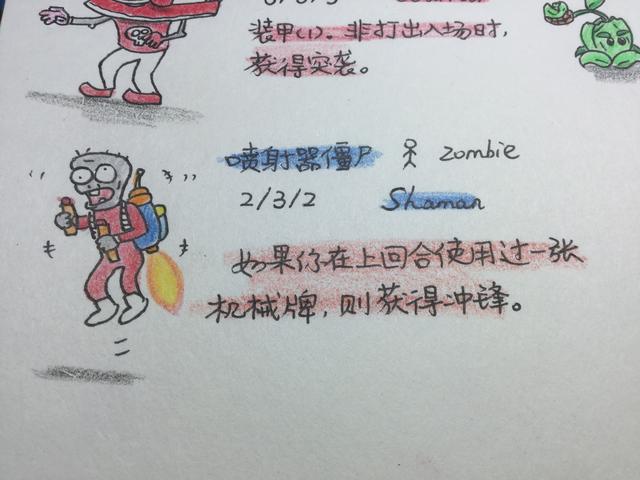 装甲(1)。非打出入场时，
获得突袭。
喷射器僵尸 zombie
2/3/2 Shaman
如果你在上回合使用过一张
机械牌，则获得冲锋。